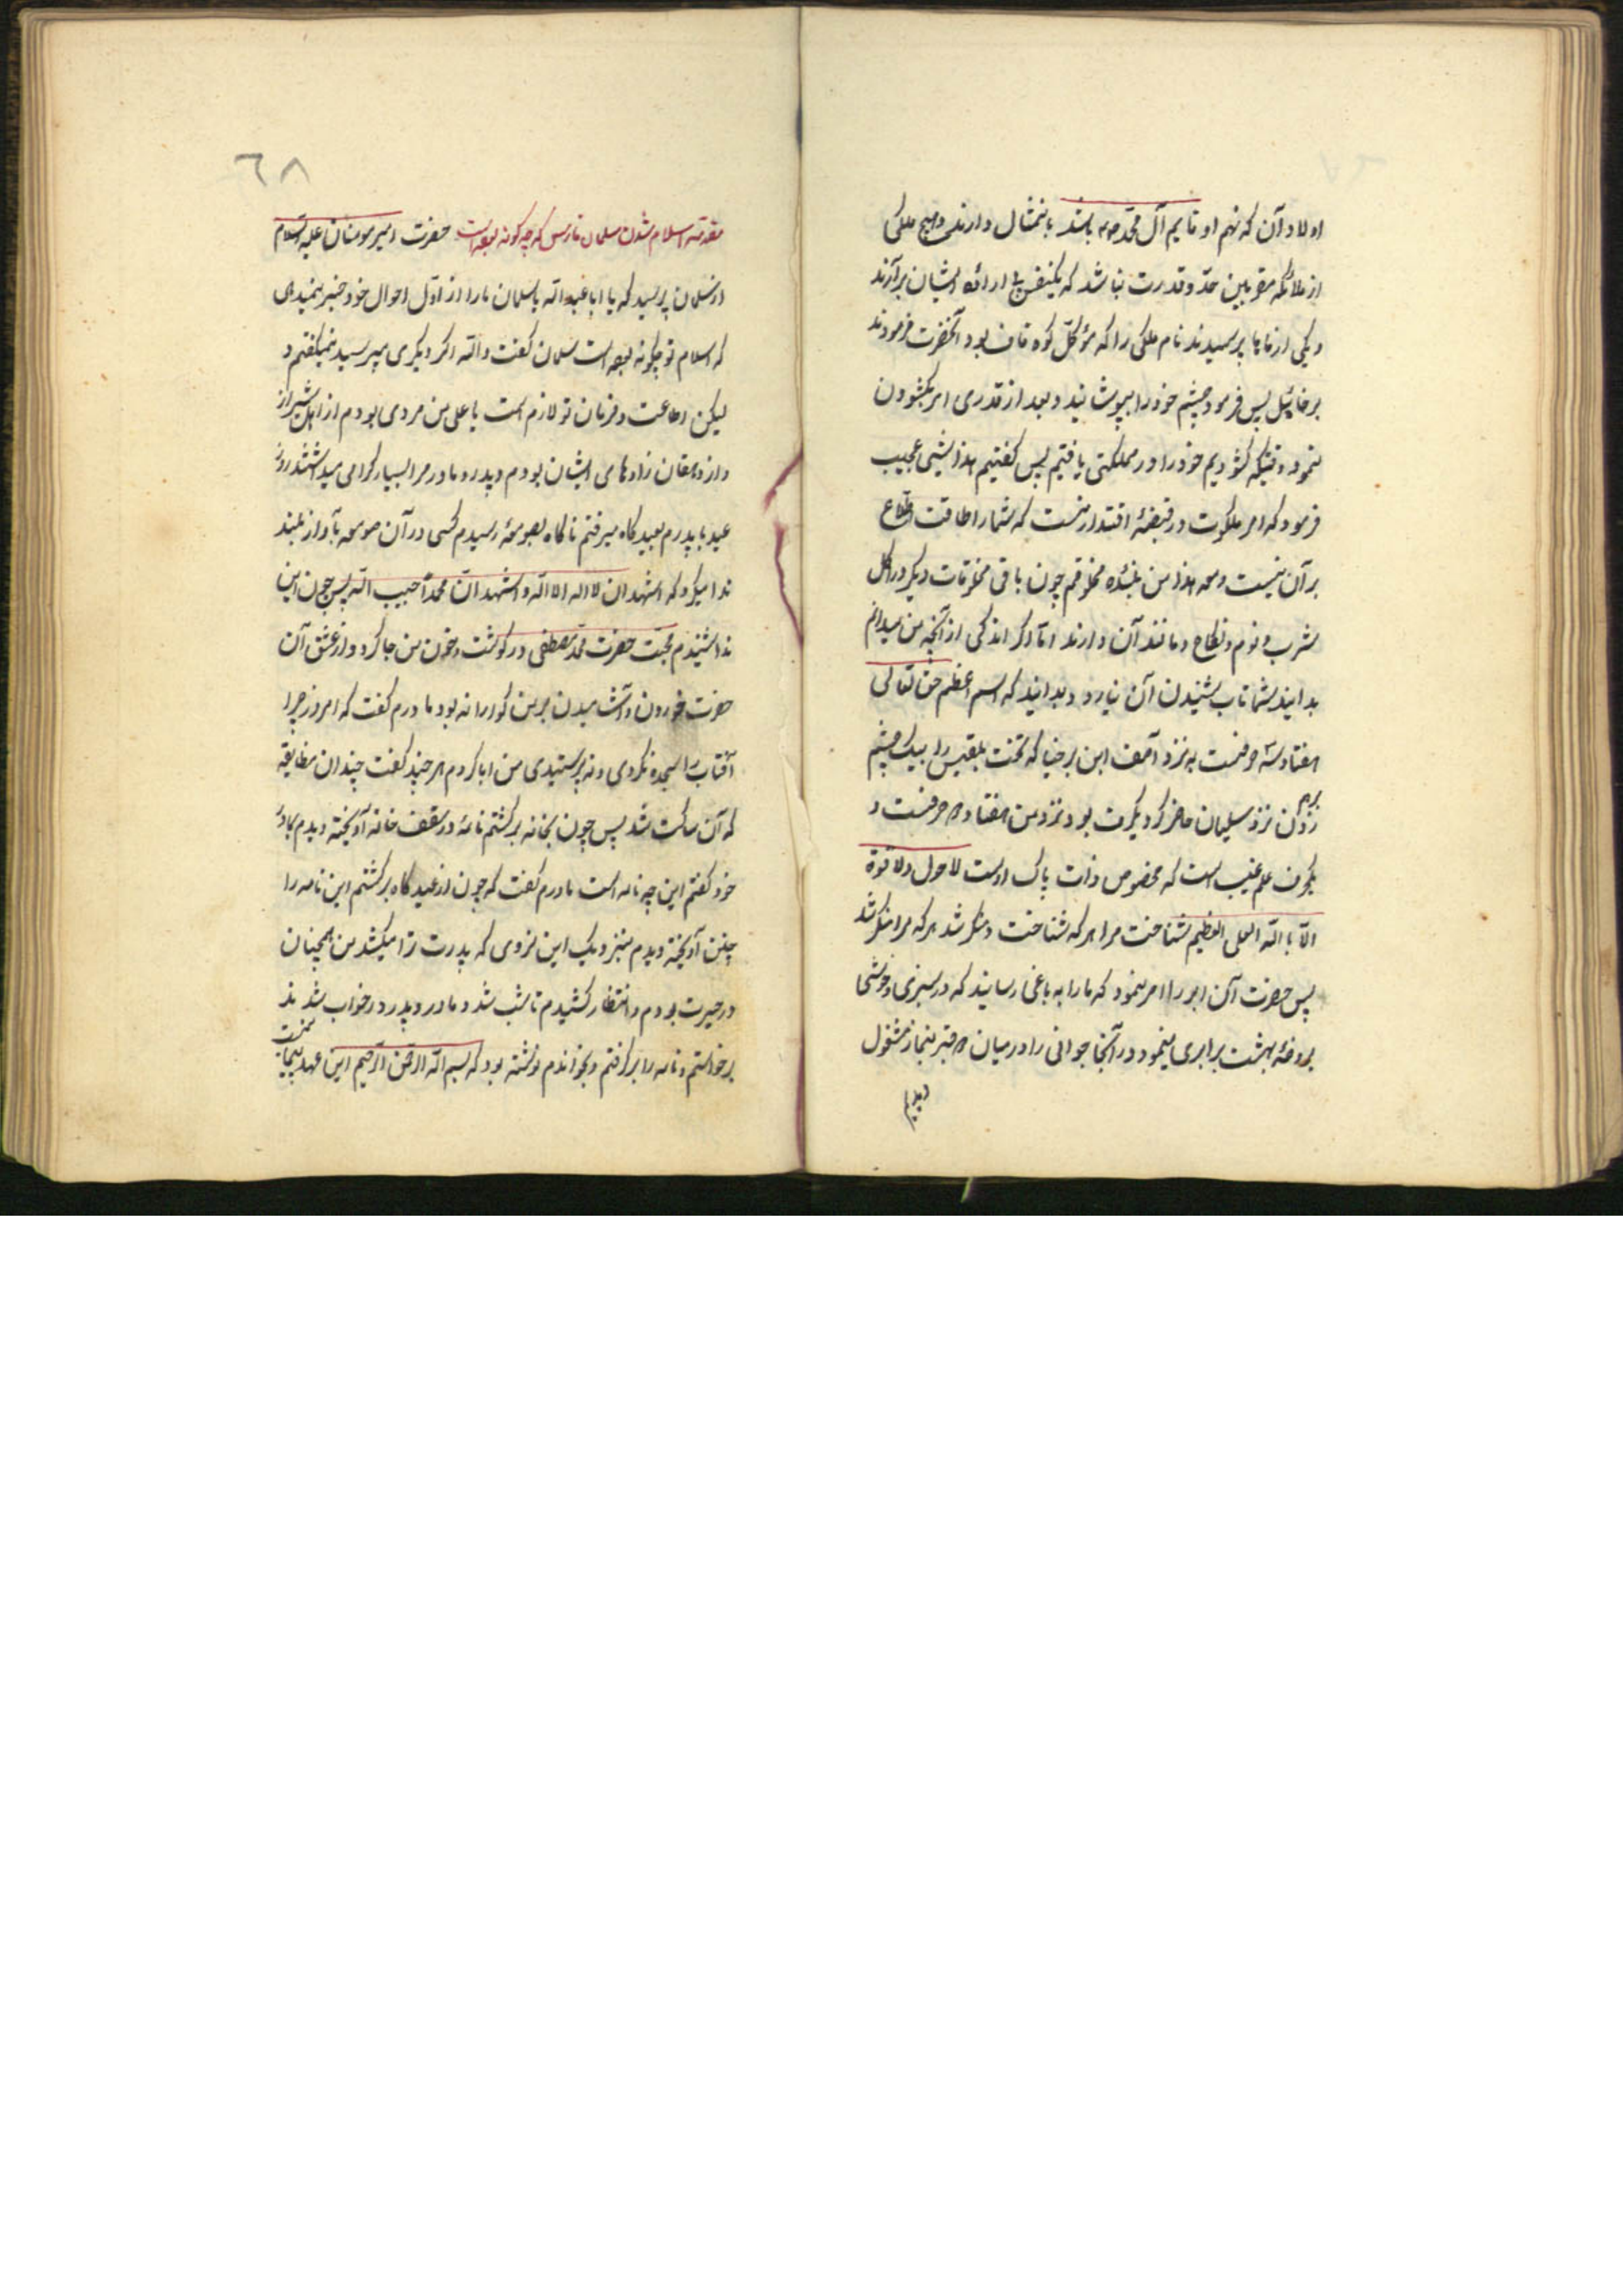 اولاد آن که نهم او قایم آل محمد باشد بانمثال دارند و هیچ ملکی
از ملائکه مقربین حد و قدرت نباشد که یکنفس بی اراده ایشان برآرند
و یکی از ماها پرسیدند نام ملکی را که مؤکل کوه قاف بود آنحضرت فرمودند
برخائیل پس فرمود چشم خود را بپوشانید و بعد از قدری امر بکشودن
نمود وقتیکه کشودیم خود را در مملکتی یافتیم پس کفتیم هذا شیئ عجیب
فرمود که امر ملکوت در قبضهٔ اقتدار منست که شما را طاقت اطلاع
بر آن نیست و معه هذا من بندۀ مخلوقم چون باقی مخلوقات دیکر در اکل
شرب و نوم و نکاح و مانند آن دارند اما اکر اندکی از آنچه من میدانم
بدانید شما تاب شنیدن آن نیارد و بدانید که اسم اعظم حق تعالی
هفتاد سه حرفست به نزد آصف ابن برخیا که تخت بلقیس را بیک چشم
برهم زدن نزد سلیمان حاضر کرد یکحرف بود و نزد من هفتاد حرفست و
یکحرف علم غیب است که مخصوص ذات پاک اوست لا حول ولا قوة
الا بالله العلی العظیم شناخت مرا هر که شناخت و منکر شد هر که مرا منکر شد
پس حضرت آن ابر را امر نمود که ما را به باغی رسانید که در سبزی و خوشی
بروضهٔ بهشت برابری مینمود در آنجا جوانی را در میان قبر بنماز مشغول
دیدیم
٦٨
مقدمه اسلام شدن سلمان فارس که چه کونه بوده است حضرت امیر مومنان علیه السلام
از سلمان پرسید که یا ابا عبدالله یا سلمان ما را از اول احوال خود خبر نمیدهی
که اسلام تو چکونه بوده است سلمان کفت والله اکر دیکری میپرسید نمیکفتم و
لیکن اطاعت و فرمان تو لازم است یا علی من مردی بودم از اهل شیراز
و از دهقان زادهای ایشان بودم و پدر و مادر مرا بسیار کرامی میداشتند روز
عید با پدرم بعید کاه میرفتم ناکاه بصومعهٔ رسیدم کسی در آن صومعه بآواز بلند
ندا میکرد که اشهد ان لا اله الا الله و اشهد ان محمدا حبیب الله پس چون این
ندا شنیدم محبت حضرت محمد مصطفی در کوشت و خون من جا کرد و از عشق آن
حضرت خوردن و آشامیدن بر من کوارا نه بود مادرم کفت که امروز چرا
آفتاب را سجده نکردی و نه پرستیدی من ابا کردم هر چند کفت چندان مضایقه
که آن ساکت شد پس چون بخانه برکشتم نامهٔ در سقف خانه آویخته دیدم بمادر
خود کفتم این چه نامه است مادرم کفت که چون از عیدکاه برکشتم این نامه را
چنین آویخته دیدم بنزدیک این نروی که پدرت ترا میکشد من همچنان
در حیرت بودم و انتظار کشیدم تا شب شد و مادر و پدر در خواب شدند
برخواستم و نامه را برکرفتم و بخواندم نوشته بود که بسم الله الرحمن الرحیم این عهد